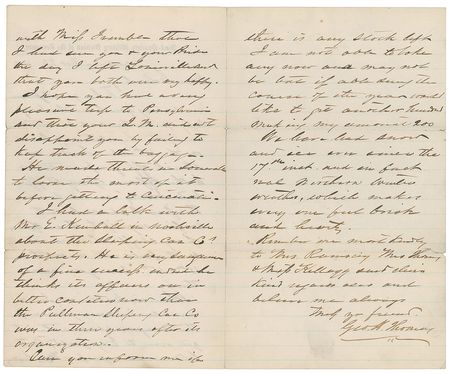 with Miss Trumble there
I had seen you & your Bride
the day I left Louisville and
that you both were very happy.
I hope you had a very
pleasant trip to Pennsylvania
and that your did not
disappoint you by failing to
keep track of the baggage.
He
to loose the most of it
before getting to Cincinnati.
I had a talk with
Mr E. Kimball in Nashville
about the Sleeping Car Cos
prospects. He is very sanguine
of a fine success indeed he
thinks its affairs are in
better condition now than
the Pullman Sleeping Car Co
was in three years after its
organization.
Can you inform me if
there is any stock left
I am not able to take
any now and may not
be but if able during the
course of the year would
like to get another hundred
making my amount 200
We have had snow
and ice ever since the
17.th inst. and in fact
real Northern winter
weather, which makes
every one feel brisk
and hearty.
Remember me most kindly
to Mrs Ramsey Mrs
& Miss Kellogg and
kind regards and
believe me always
Truly yr friend
Geo. H. Thomas